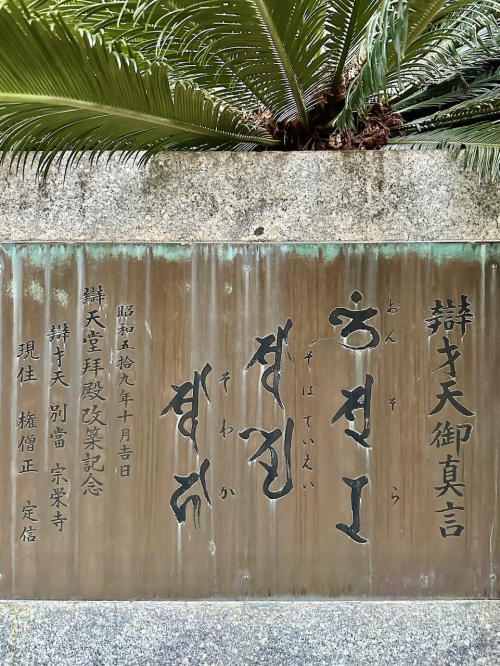 辯才天御真言
おん そ ら
𑖌𑖼 𑖭 𑖨
そはていえい
𑖭𑖿𑖪 𑖝𑖿𑖧𑖸
そわ か
𑖭𑖿𑖪𑖯 𑖮𑖯
昭和五拾九年十月吉日
辯天堂拝殿改築記念
辯才天 別當 宗栄寺
現住 権僧正 定信